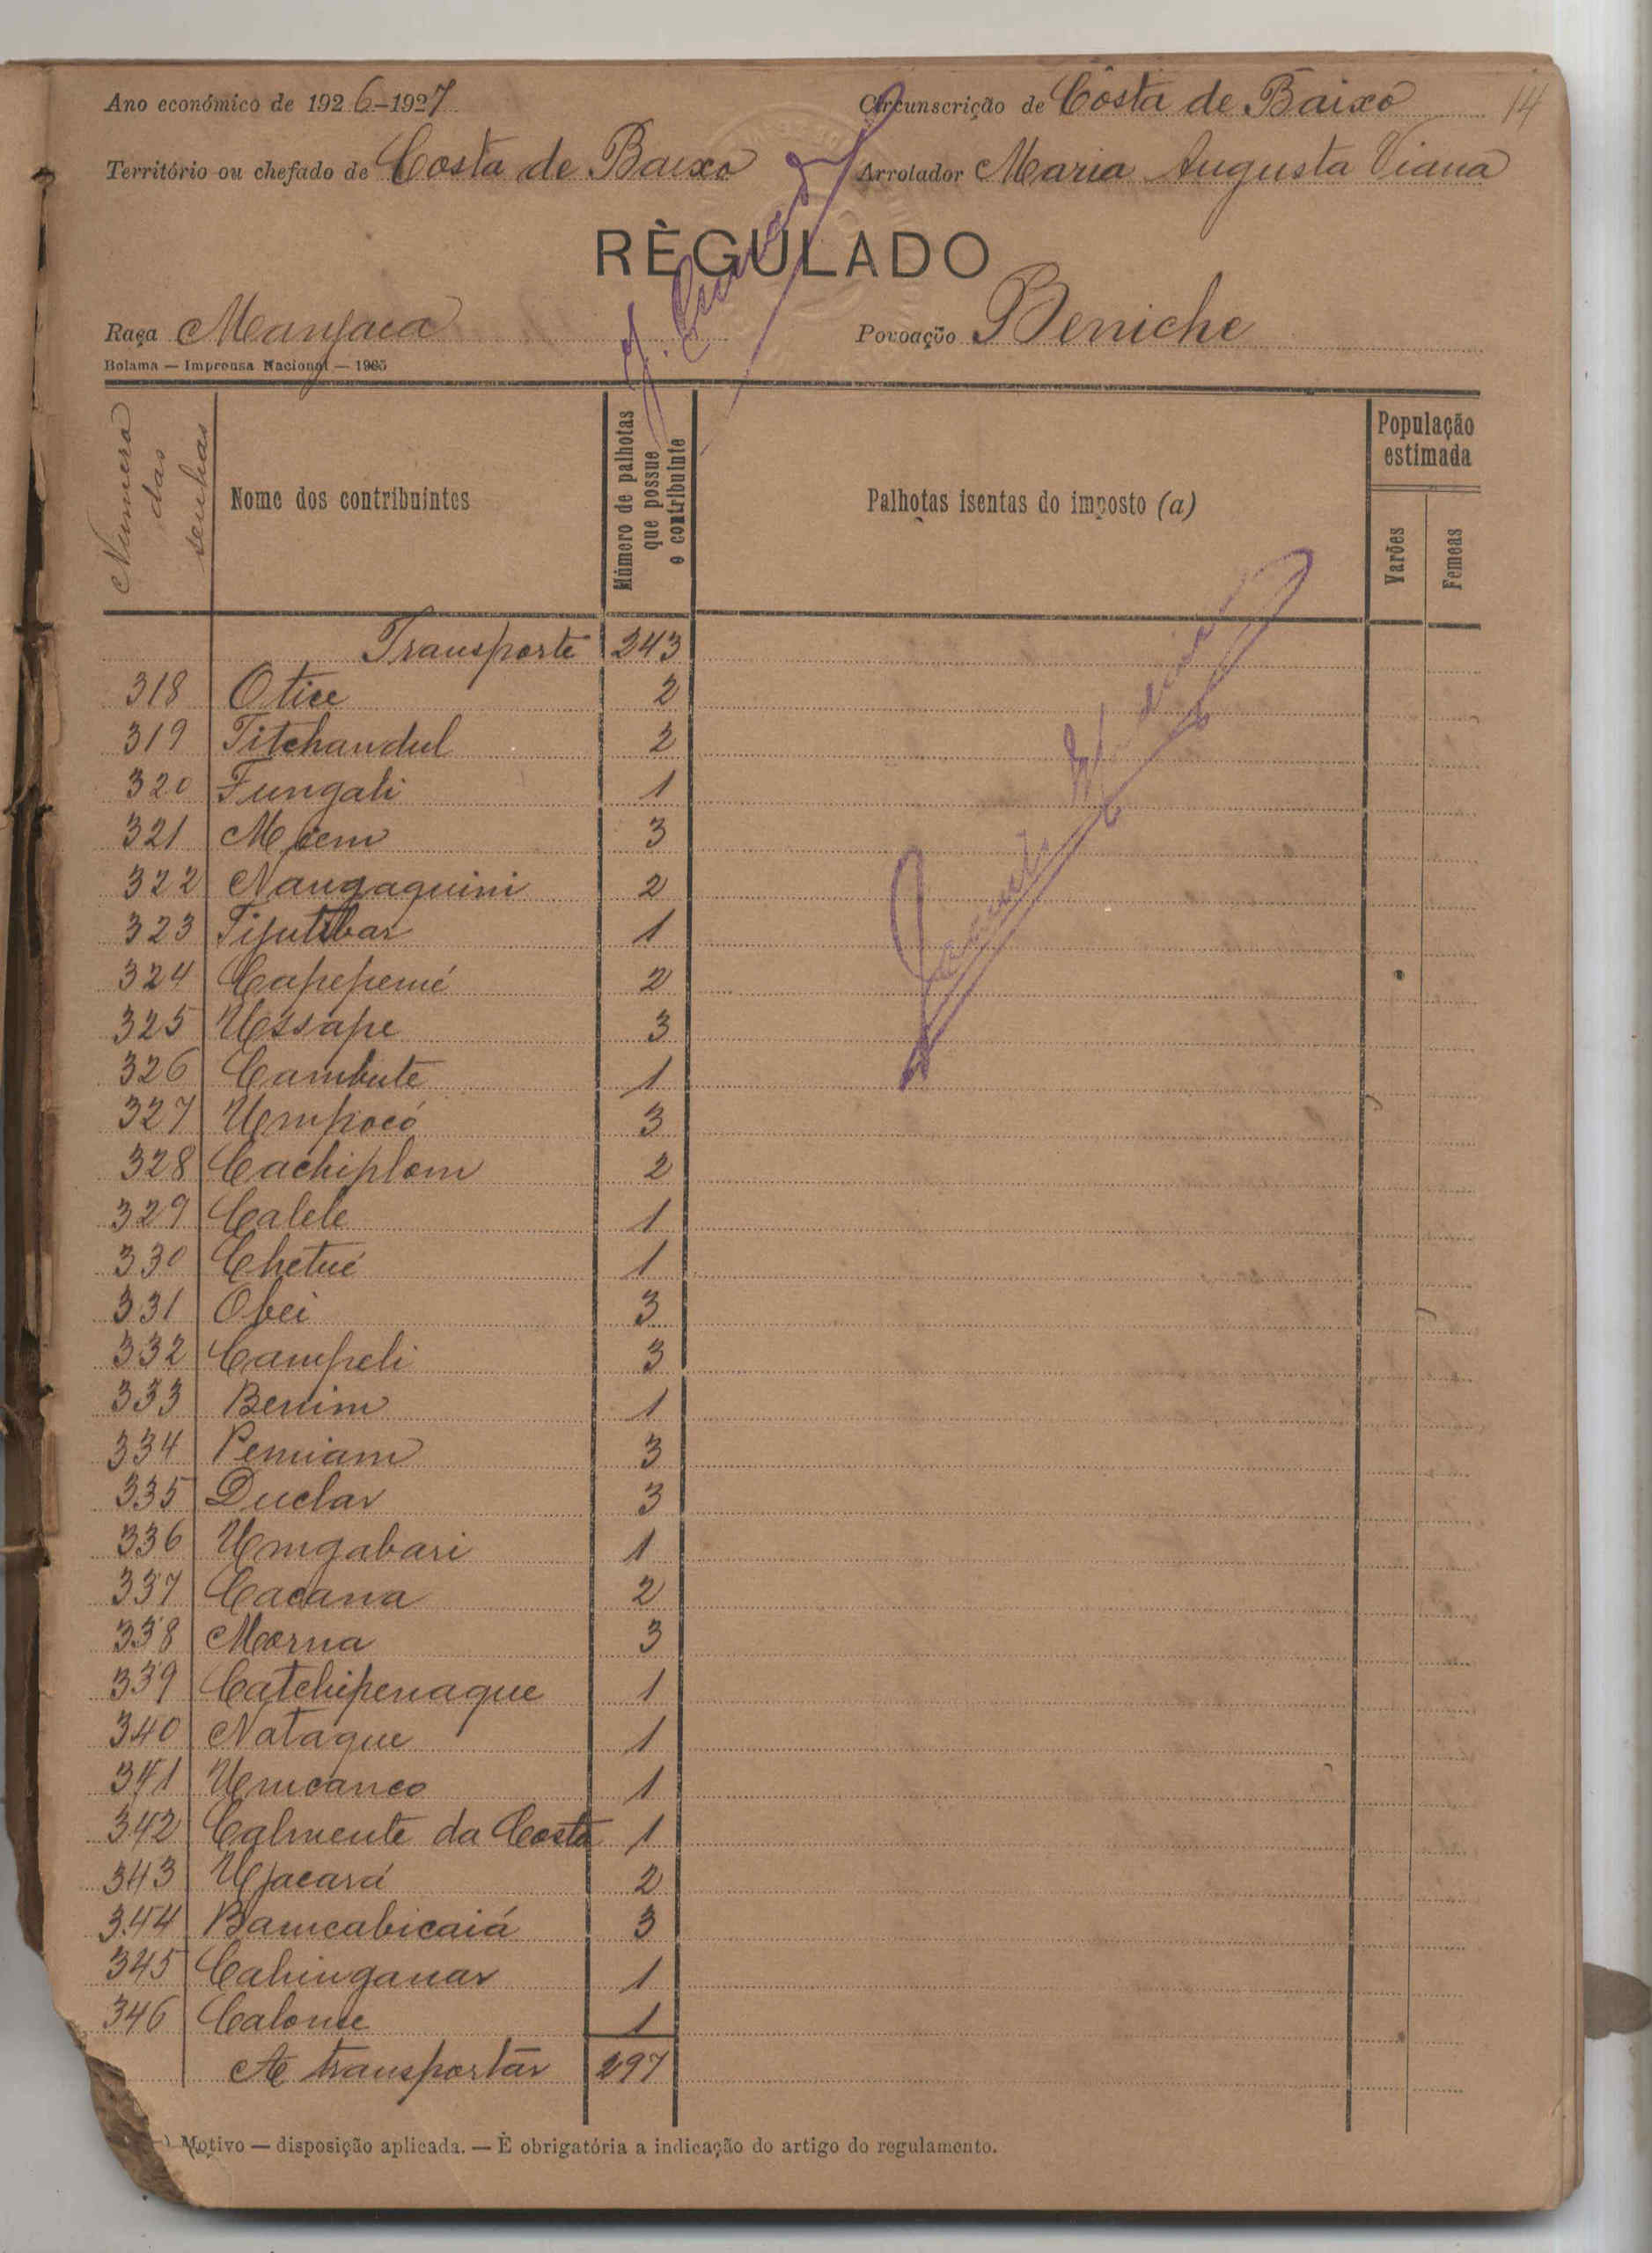 Ano económico de 1926-1927 Circunscrição de Cósta de Baixo 14
Território ou chefado de Costa de Baixo Arrolador Maria Augusta Viana
RÈGULADO
Raça Manjaca Povoação Beniche
Bolama — Imprensa Nacional — 1925
Numero das senhas
Nome dos contribuintes
Número de palhotas que possue o contribuinte
Palhotas isentas do imposto (a)
População estimada
Varões
Femeas
Transporte 243
318 Otice 2
319 Titchandul 2
320 Fungali 1
321 3
322 Naugaquini 2
323 1
324 Capepemé 2
325 Ussape 3
326 Cambute 1
327 Umpocó 3
328 Cachiplom 2
329 Calele 1
330 Chetué 1
331 Obei 3
332 Campeli 3
333 Benim 1
334 Pemiam 3
335 Duclar 3
336 Umgabari 1
337 Cacana 2
338 Morna 3
339 Catchipenaque 1
340 Nataque 1
341 Umcanco 1
342 Calmente da Costa 1
343 Ujacará 2
344 Bamcabicaiá 3
345 Cahinganar 1
346 Calonse 1
A transportar 297
Motivo — disposição aplicada. — È obrigatória a indicação do artigo do regulamento.